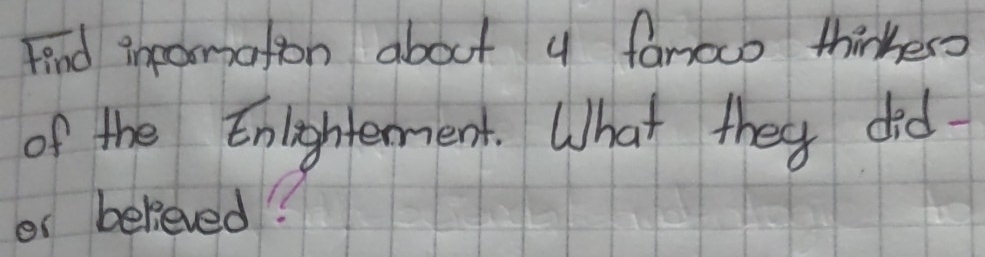 Find information about 4 famous thinkers
of the Enlightenment. What they did -
or believed?